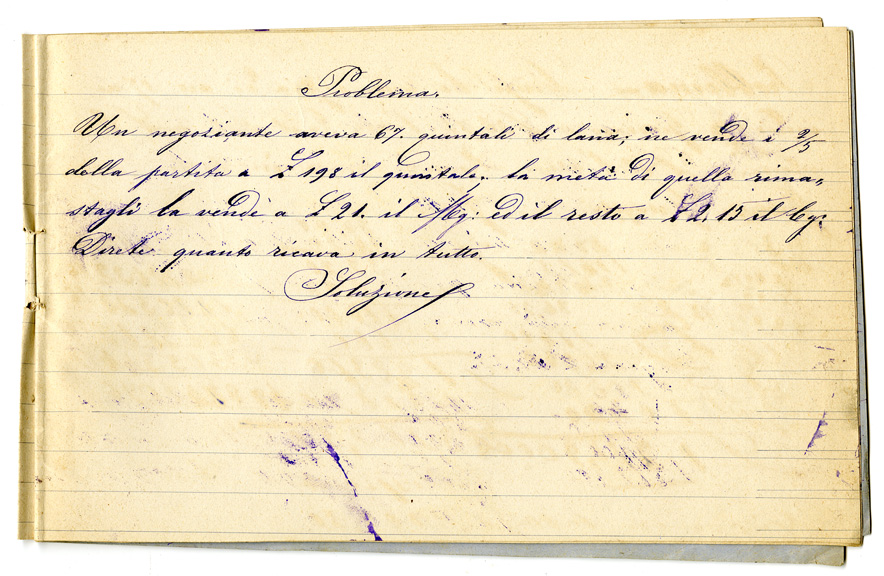 Problema.
Un negoziante aveva 67. quintali di lana; ne vende i 2/5
della partita a £ 198 il quintale; la metà di quella rima„
stagli la vende a £ 21. il Mg: ed il resto a £ 2.15 il Cg:
Direte quanto ricava in tutto.
Soluzione